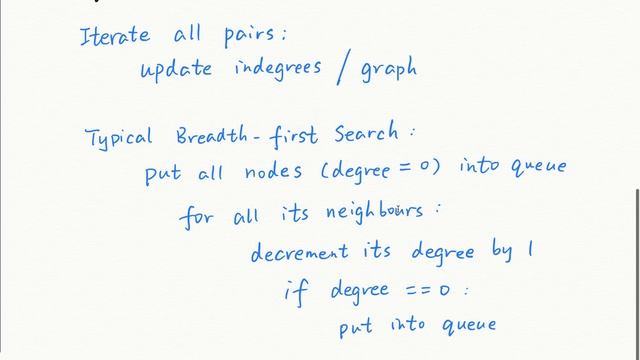 Iterate all pairs:
update indegrees / graph
Typical Breadth-first Search:
put all nodes (degree = 0) into queue
for all its neighbours:
decrement its degree by 1
if degree == 0:
put into queue